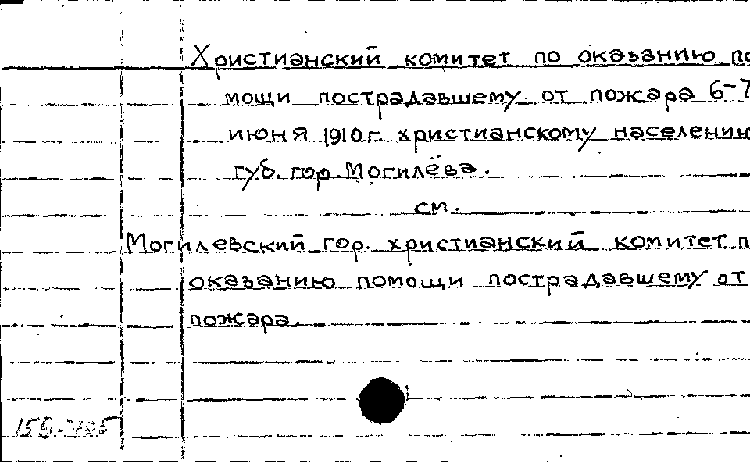 Христианский комитет по оказанию по
мощи пострадавшему от пожара 6-7
июня 1910 г. христианскому населению
губ. гор. Могилёва.
см.
Могилевский гор. христианский комитет п
оказанию помощи пострадавшему от
пожара